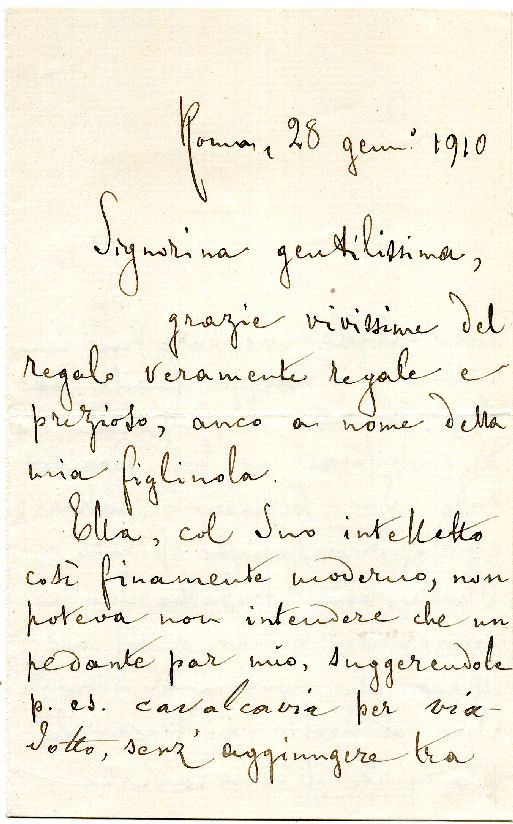 Roma, 28 genn.º 1910
Signorina gentilissima,
grazie vivissime del
regalo veramente regale e
prezioso, anco a nome della
mia figlinola.
Ella, col Suo intelletto
così finamente moderno, non
poteva non intendere che un
pedante par mio, suggerendole
p. es. cavalcavia per via-
dotto, senz'aggiungere tra